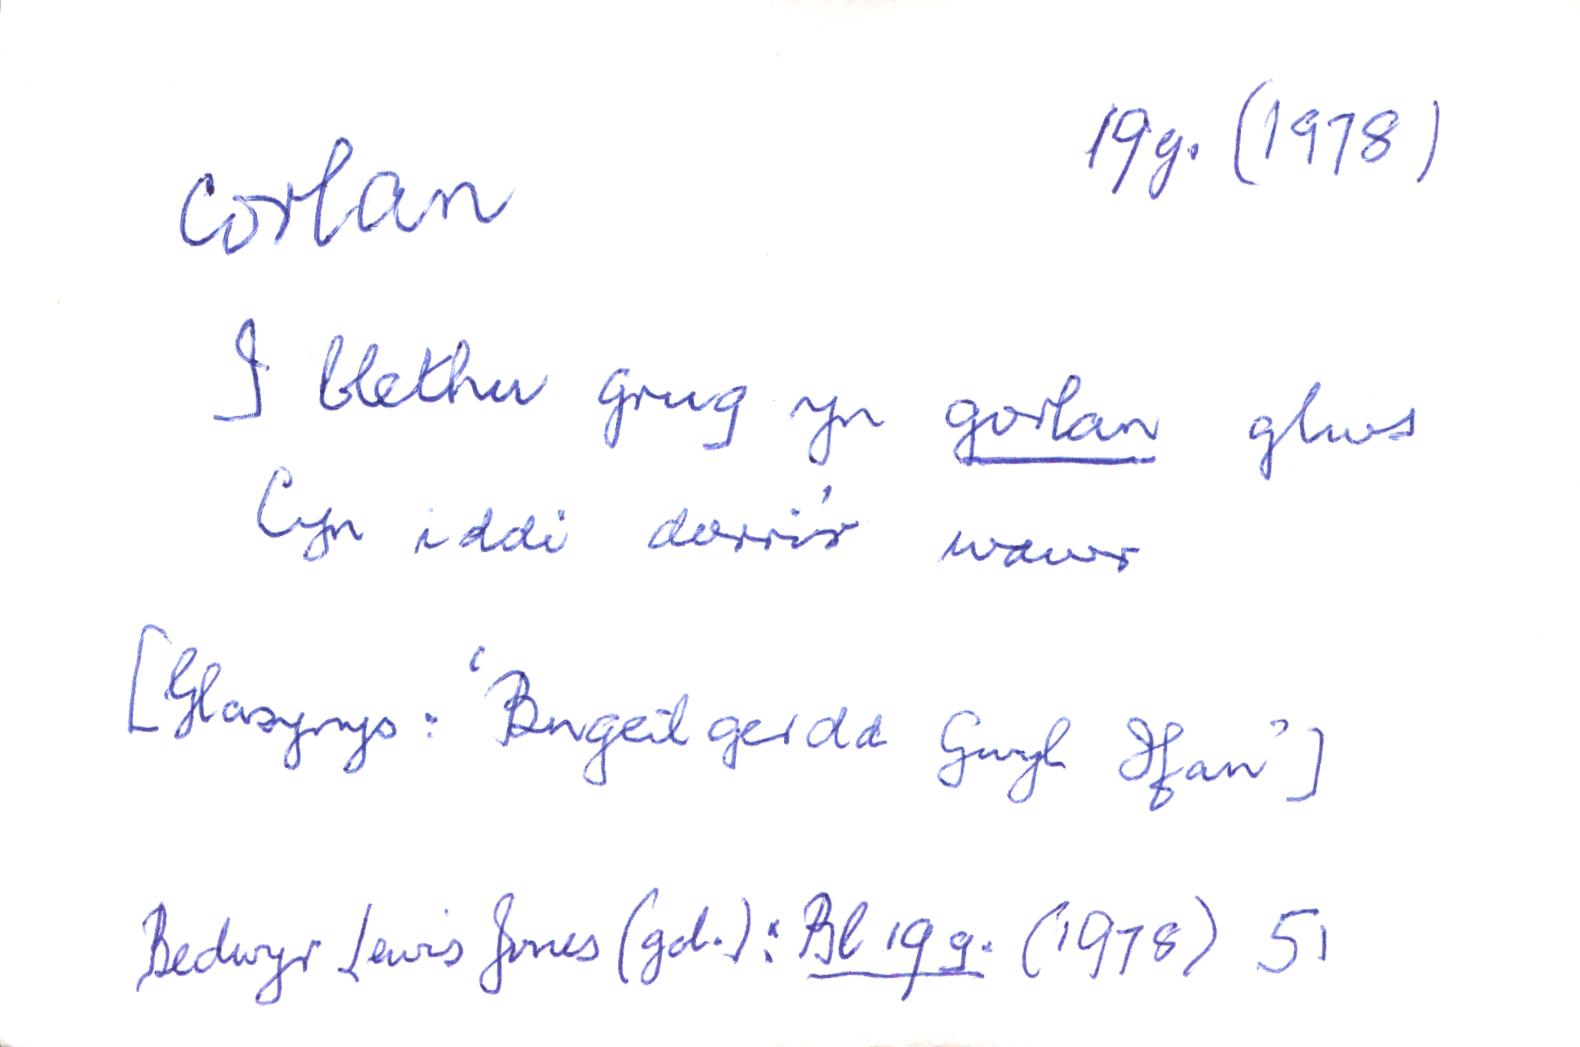 19g. (1978)
corlan
I blethu grug yn gorlan glws
Cyn iddi dorri'r wawr
[Glasynys: 'Bugeilgerdd Gwyl Ifan']
Bedwyr Lewis Jones (gol.): Bl 19g. (1978) 51